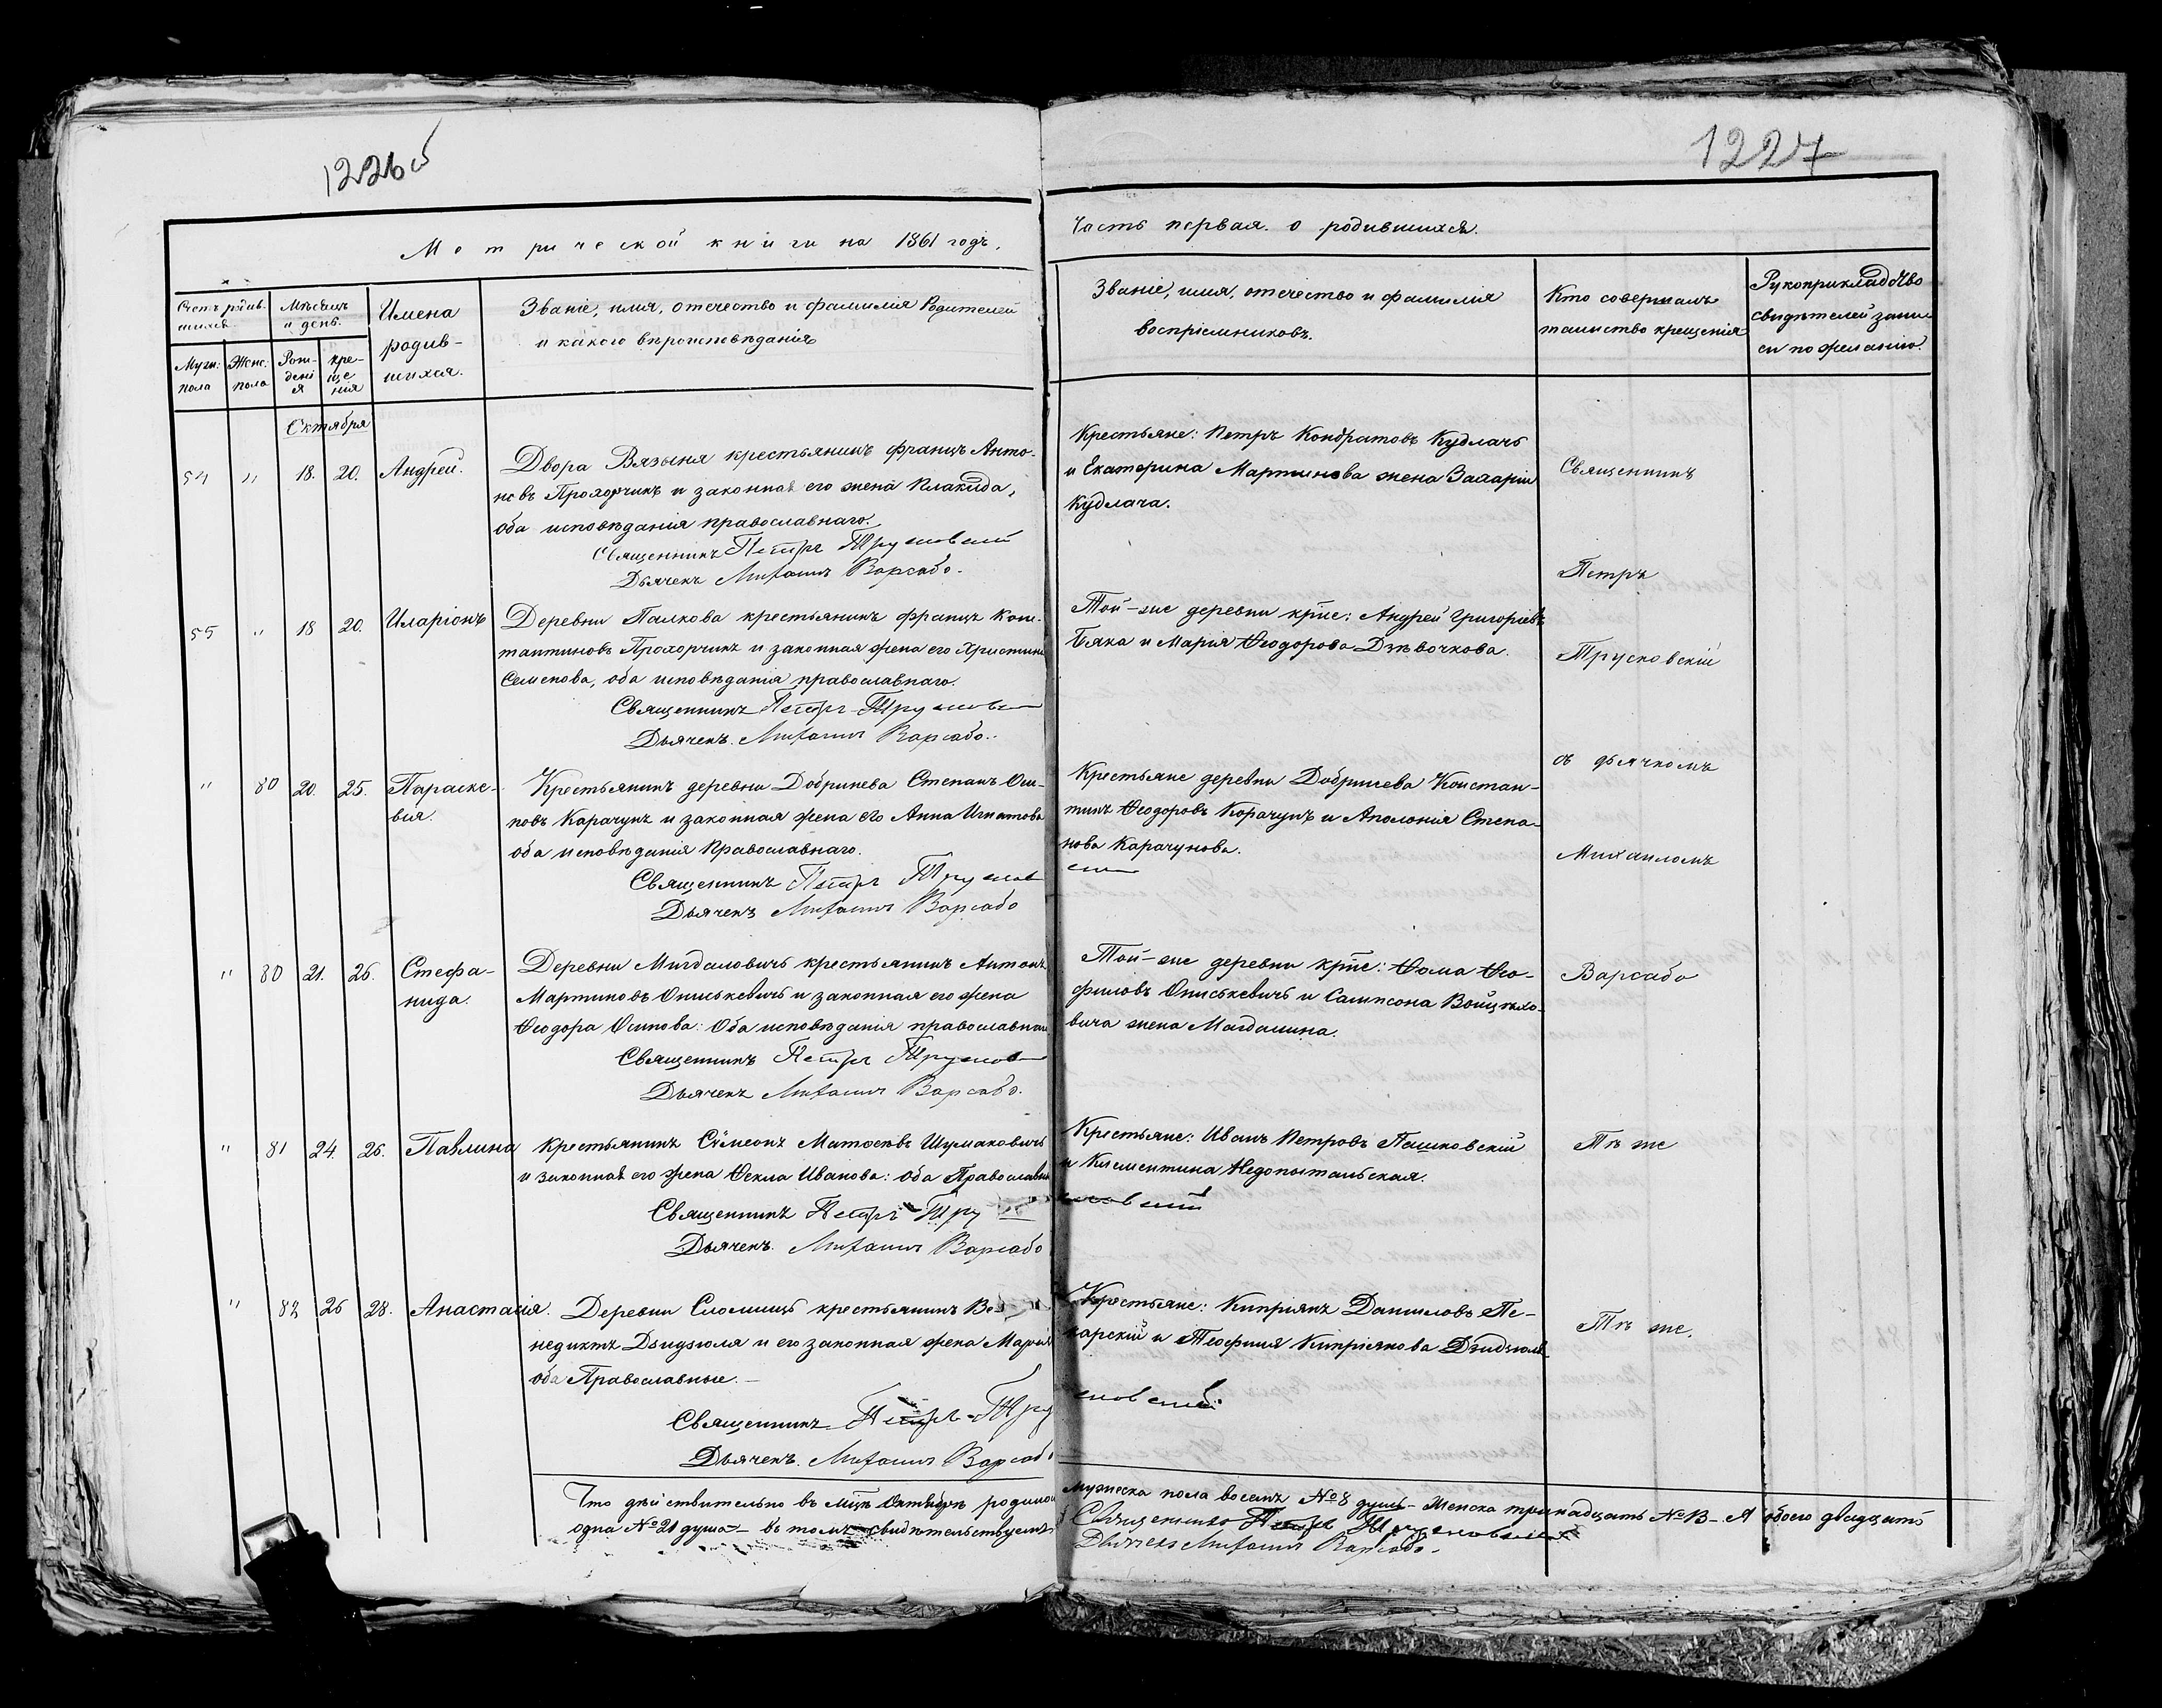 1226 об
1227
Метрической книги на 1861 годъ.
Часть первая. о родившихся.
Счетъ родив-
шихся
Мѣсяцъ
и день.
Имена
родив-
шихся.
Званіе, имя, отечество и фамилія Родителей
и какого вѣроисповѣданія
Званіе, имя, отечество и фамилія
воспріемниковъ.
Кто совершалъ
таинство крещенія
Рукоприкладство
свидѣтелей запи-
си по желанію.
Муж:
пола
Женс:
пола
Рож-
дені
я
кре-
ще
нія
Октября
54 " 18. 20. Андрей.
Двора Вязыня крестьянинъ францъ Анто-
новъ Прохорчикъ и законная его жена Плакида,
оба исповѣданія православнаго.
Священникъ Петръ Трусковскій
Дьячекъ Михаилъ Варсабо.
Крестьяне: Петръ Кондратовъ Кудлачъ
и Екатерина Мартинова жена Захарія
Кудлача.
Священникъ
Петръ
Трусковскій
съ дьячкомъ
Михаиломъ
Варсабо
55 " 18 20. Иларіонъ
Деревни Палкова крестьянинъ францъ Конс-
тантиновъ Прохорчикъ и законная жена его Христина
Семенова, оба исповѣданія православнаго.
Священникъ Петръ Трусков
Дьячекъ. Михаилъ Варсабо.
Той-же деревни крт͠не: Андрей Григоріевъ
Бяка и Марія Ѳеодорова Дзѣвочкова.
" 80 20. 25. Параске-
вія.
Крестьянинъ деревни Добринева Степанъ Оси-
повъ Карачунъ и законная жена его Анна Игнатова
оба исповѣданія Православнаго.
Священникъ Петръ Трусков
Дьячекъ Михаилъ Варсабо
Крестьяне деревни Добринева Констан-
тинъ Ѳеодоровъ Корачунъ и Аполонія Степа-
нова Карачунова.
" 80 21. 26. Стефа-
нида.
Деревни Мигдаловичъ крестьянинъ Антонъ
Мартиновъ Ониськевичъ и законная его жена
Ѳеодора Осипова: Оба исповѣданія православнаго
Священникъ Петръ Трусков
Дьячекъ Михаилъ Варсабо.
Той-же деревни крт͠не: Ѳома Ѳео-
филовъ Ониськевичъ и Сампсона Войцѣхо-
вича жена Магдалина.
" 81 24. 26. Павлина
Крестьянинъ Сѵмеонъ Матѳеевъ Шумаковичъ
и законная его жена Ѳекла Иванова: оба Православн
Священникъ Петръ Тру
сковскій
Дьячекъ. Михаилъ Варсабо
Крестьяне: Иванъ Петровъ Пашковскій
и Клементина Недопытальская.
Тѣ же
" 82 26 28. Анастасія.
Деревни Сломищъ крестьянинъ Бе-
недиктъ Дзидзюля и его законная жена Марія
оба Православные.
Священникъ Петръ Тру
сковскій
Дьячекъ. Михаилъ Варсабо
Крестьяне: Кипріянъ Даниловъ Пе-
карскій и Теофилія Кипріянова Дзидзюля
Тѣ же.
Что дѣйствительно въ мцѣ Октябрѣ родилось мужеска пола восемь №8 душъ - Женска тринадцать №13 - А обоего двадцать
одна №21 душа - въ томъ свидѣтельствуемъ Священникъ Петръ Трусковскій
Дьячекъ Михаилъ Варсабо.